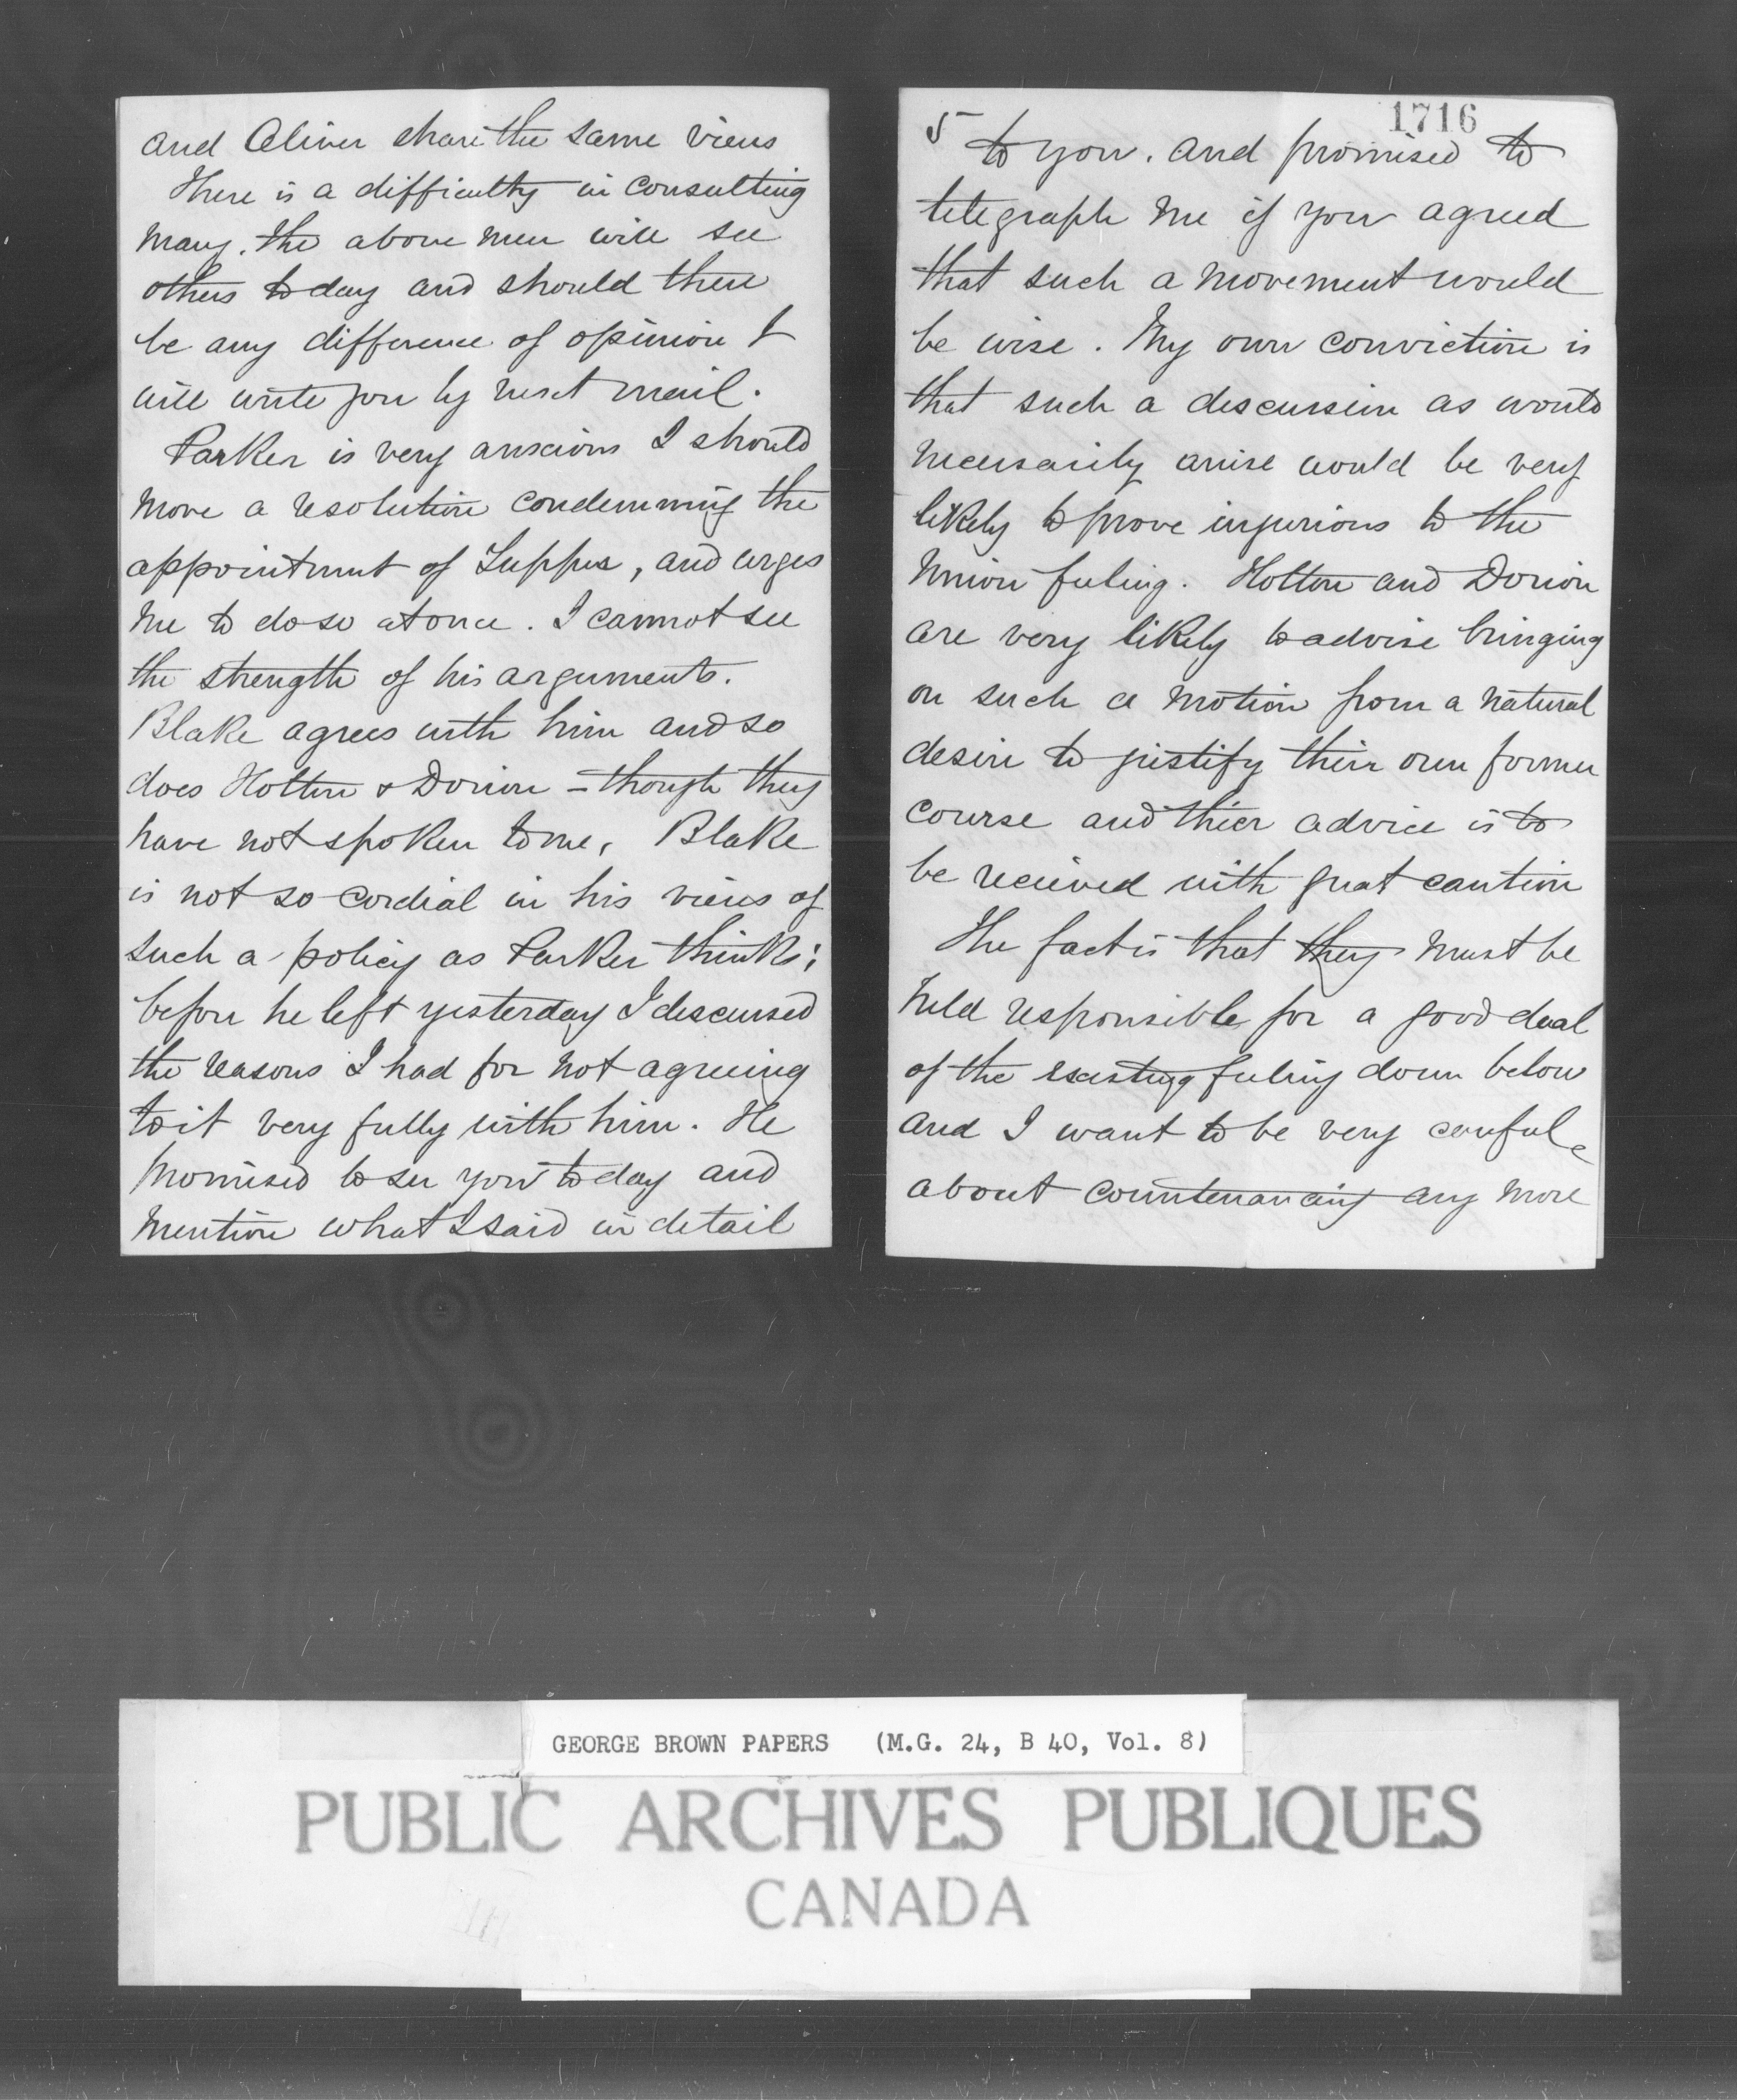 and Oliver share the same views
There is a difficulty in consulting
many. the above men will see
others today and should there
be any difference of opinion I
will write you by next mail.
Parker is very anxious I should
move a resolution condemning the
appointment of Tupper, and urges
me to do so at once. I cannot see
the strength of his arguments.
Blake agrees with him and so
does Holton & Dorion – though they
have not spoken to me, Blake
is not so cordial in his views of
such a policy as Parker thinks;
before he left yesterday I discussed
the reasons I had for not agreeing
to it very fully with him. He
promised to see you today and
mention what I said in detail
1716
5
to you. and promised to
telegraph me if you agreed
that such a movement would
be wise. My own conviction is
that such a discussion as would
necessarily arise would be very
likely to prove injurious to the
Union feeling. Holton and Dorion
are very likely to advise bringing
on such a motion from a natural
desire to justify their own former
course and thier advice is to
be received with great caution
The fact is that they must be
held responsible for a good deal
of the existing feeling down below
and I want to be very careful
about countenancing any more
GEORGE BROWN PAPERS (M.G. 24, B 40, Vol. 8)
PUBLIC ARCHIVES PUBLIQUES
CANADA